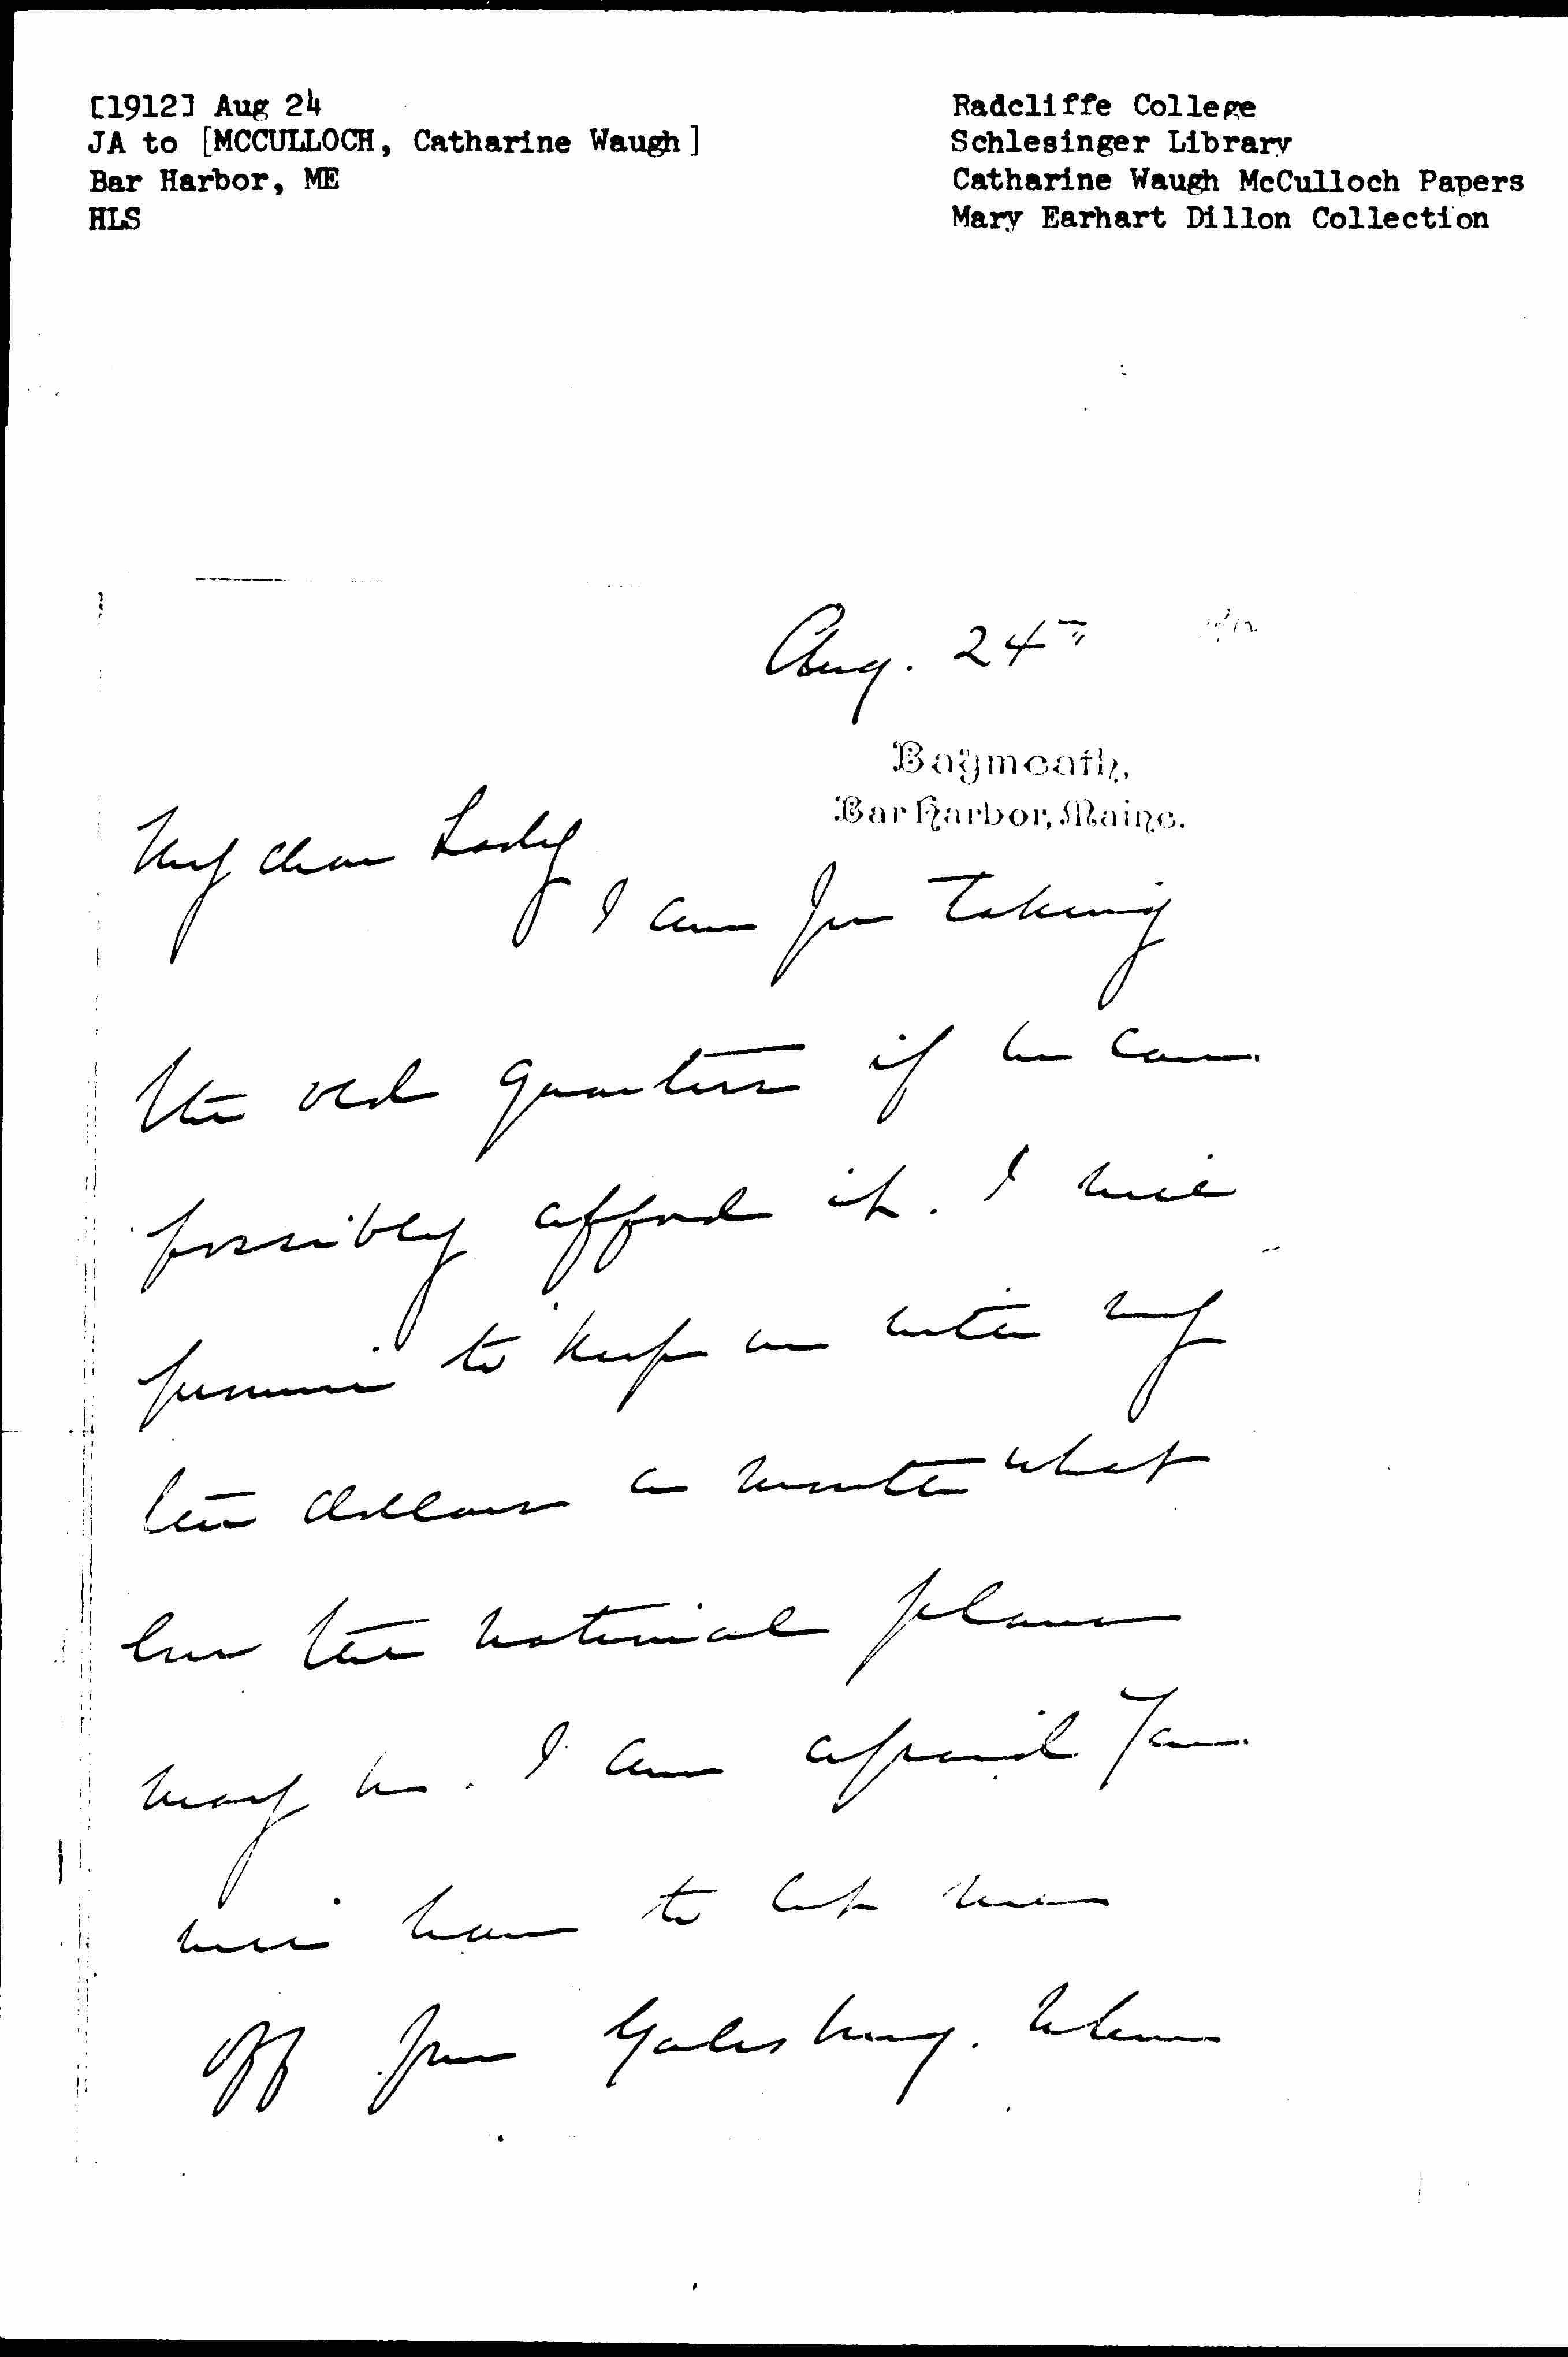 [1912] Aug 24
JA to [MCCULLOCH, Catharine Waugh]
Bar Harbor, ME
HLS
Radcliffe College
Schlesinger Library
Catharine Waugh McCulloch Papers
Mary Earhart Dillon Collection
Aug. 24"
Baymeath,
Bar Harbor, Maine.
My dear Lady
I am for taking
the old quarters if we can
possibly afford it. I will
promise to keep on with my
ten dollars a month what
ever the national plans
may be. I am afraid you
will have to let me
off from Galesburg. When